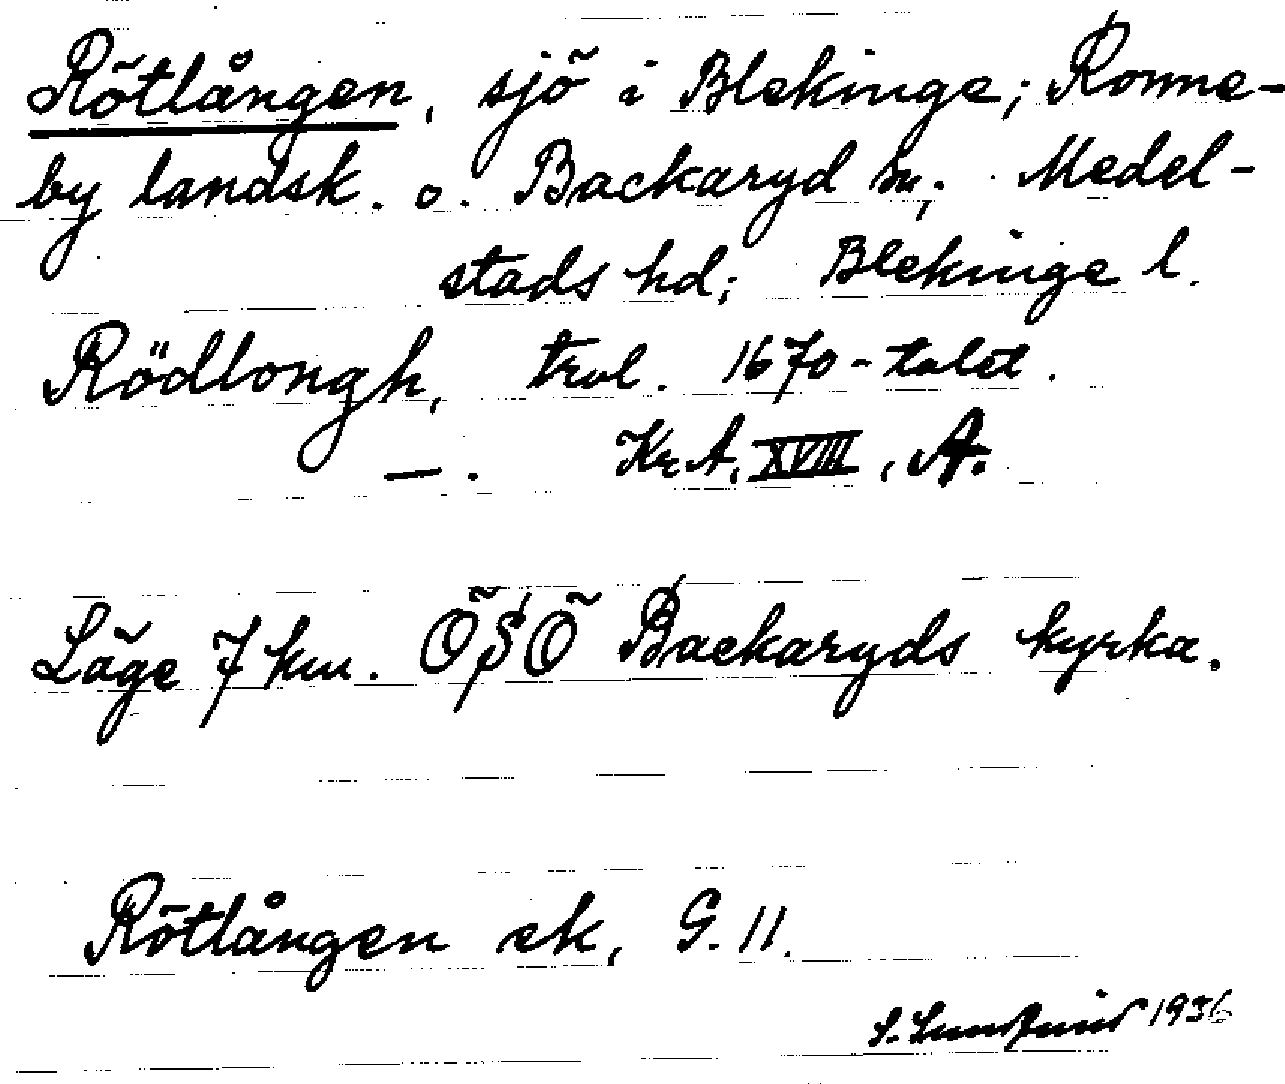 Rötlången, sjö i Blekinge; Ronne-
by landsk. o. Backaryd sn; Medel-
stads hd; Blekinge l.
Rödlongh, trol. 1670-talet.
—. Kr.A. XVIII, A.
Läge 7 km. ÖSÖ Backaryds kyrka.
Rötlången ek, G. 11.
S. 1936